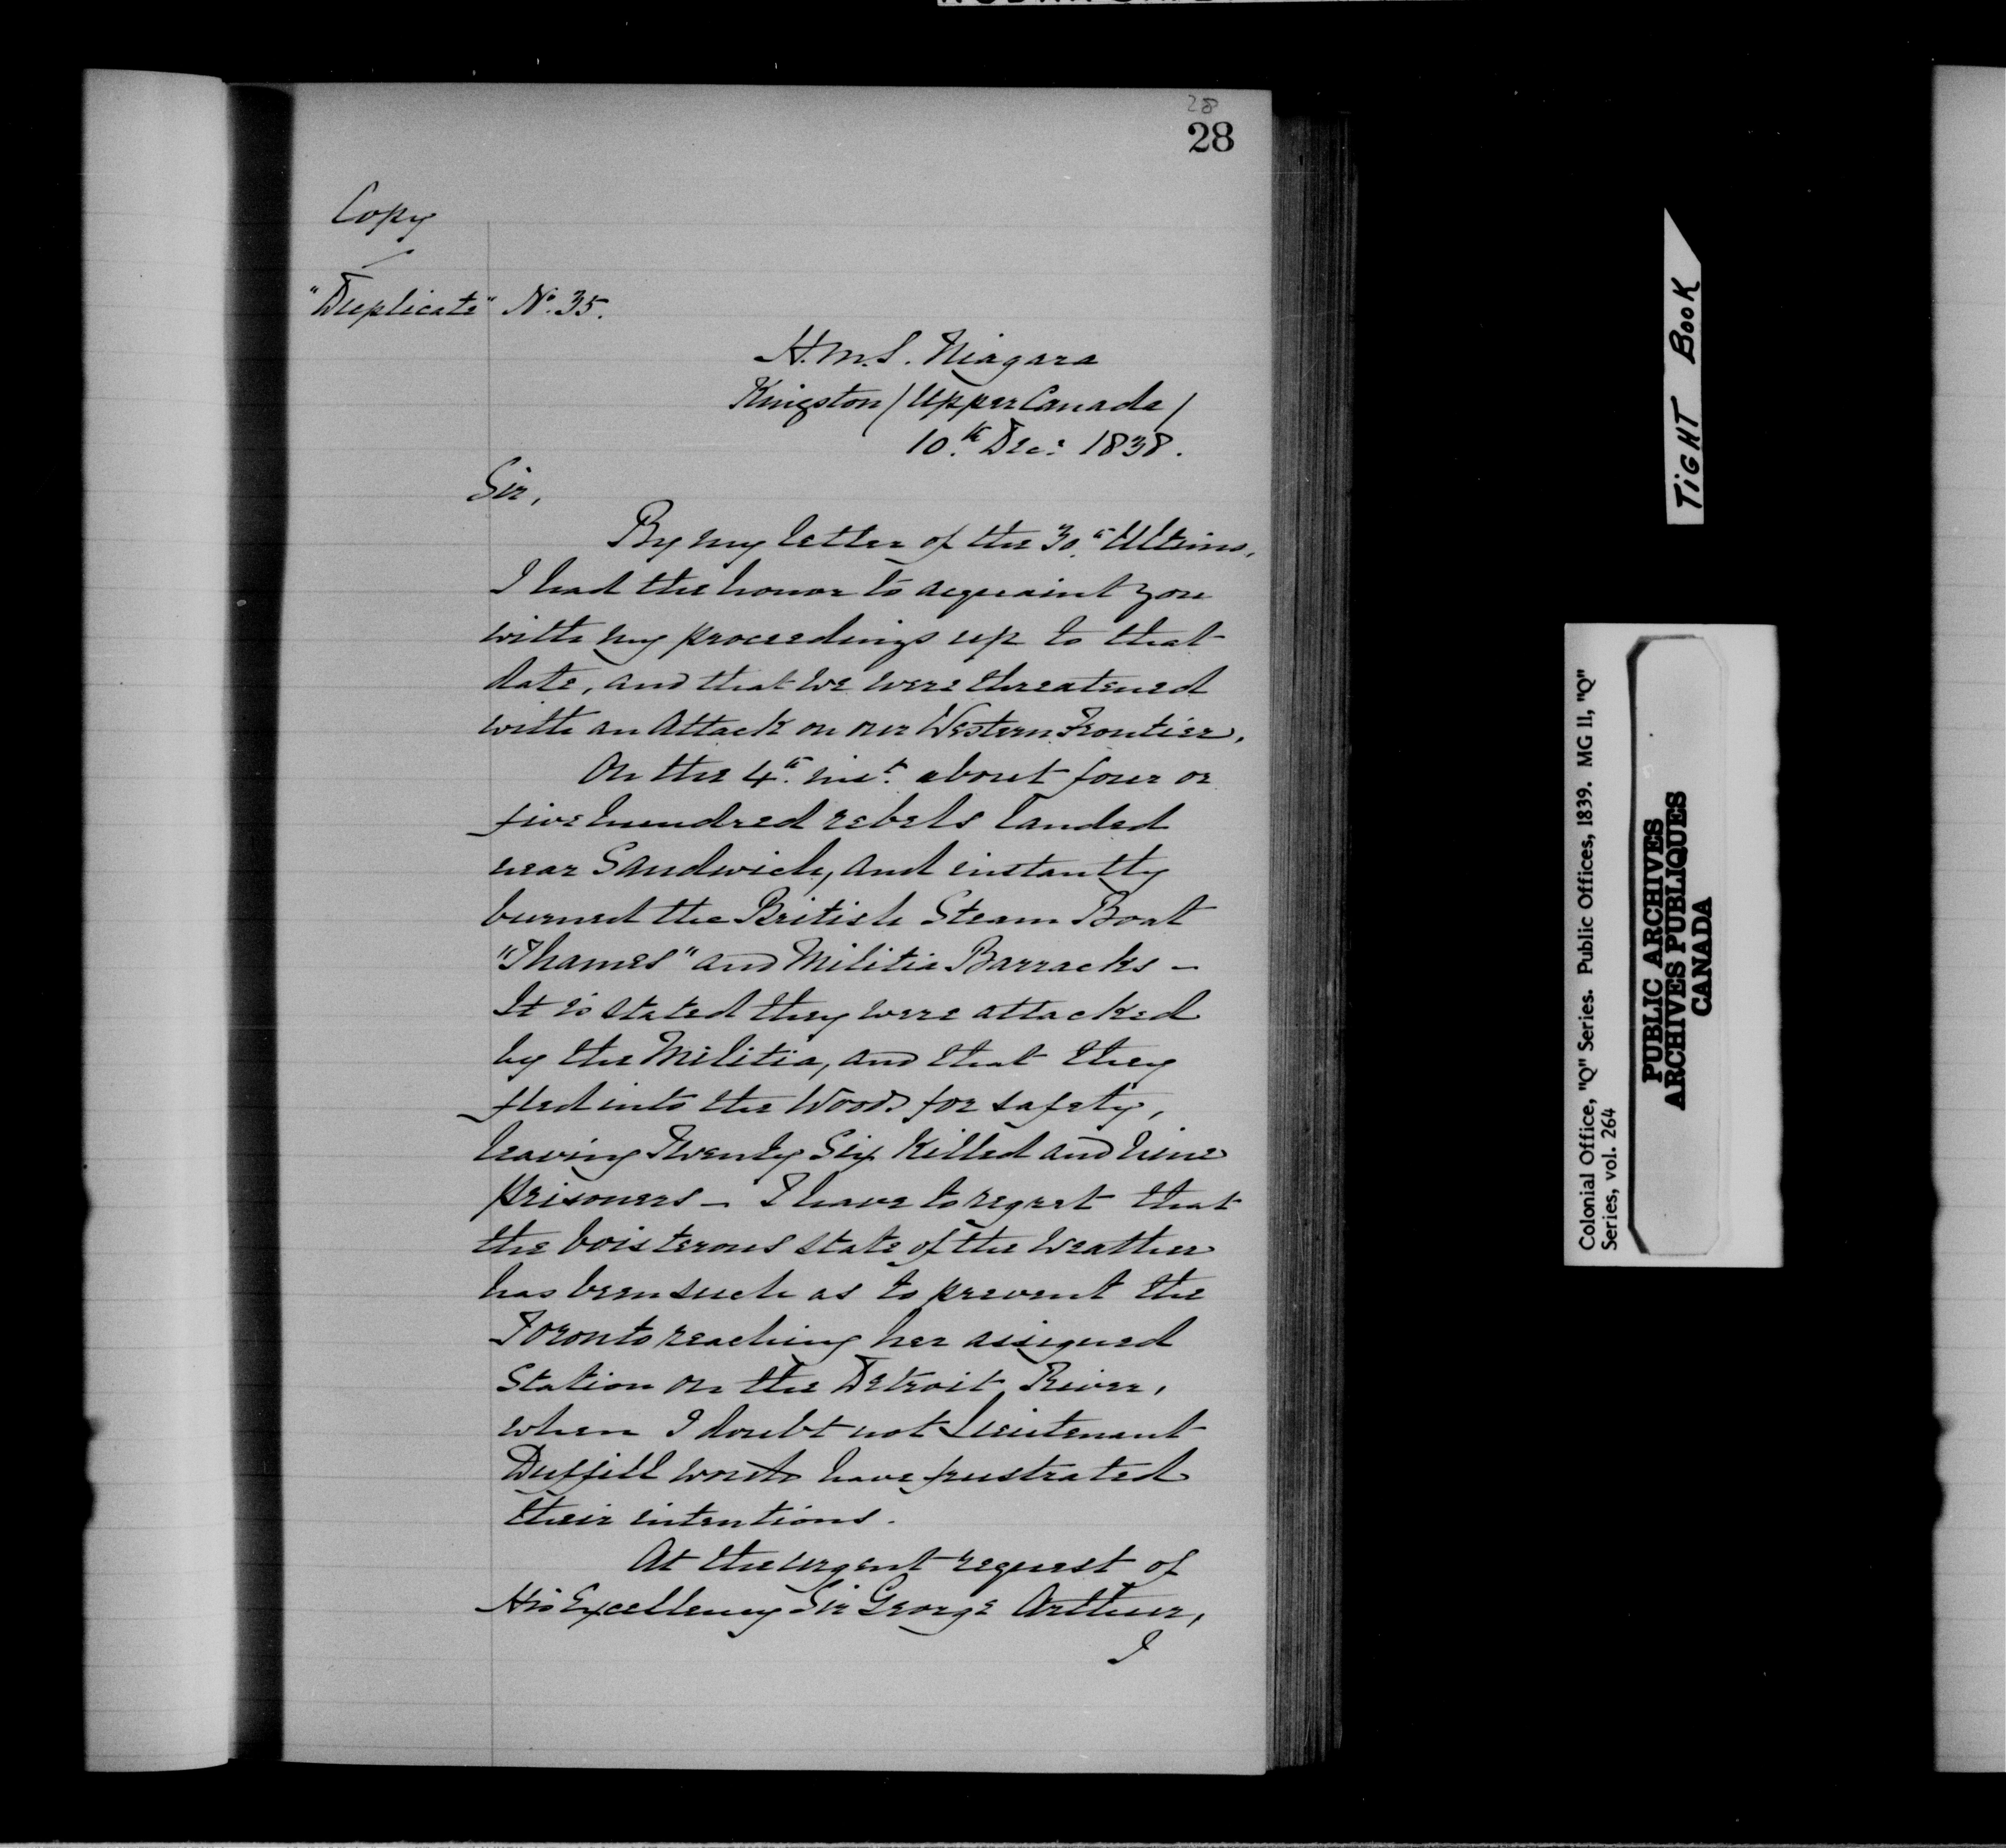 28
28
Copy
"Duplicate" No. 35.
H.M.S. Niagara
Kingston / Upper Canada /
10th Dec: 1838.
Sir,
By my letter of the 30th Ultimo,
I had the honor to acquaint you
with my proceedings up to that
date, and that we were threatened
with an attack on our Western Frontier.
On the 4th inst. about four or
five hundred rebels landed
near Sandwich, and instantly
burned the British Steam Boat
"Thames" and Militia Barracks –
It is stated they were attacked
by the Militia, and that they
fled into the Woods for safety,
leaving Twenty Six Killed and nine
prisoners – I have to regret that
the boisterous state of the Weather
has been such as to prevent the
Toronto reaching her assigned
Station on the Detroit River,
when I doubt not Lieutenant
Duffill would have frustrated
their intentions.
At the urgent request of
His Excellency Sir George Arthur,
I
TIGHT BOOK
Colonial Office, "Q" Series. Public Offices, 1839. MG 11, "Q"
Series, vol. 264
PUBLIC ARCHIVES
ARCHIVES PUBLIQUES
CANADA